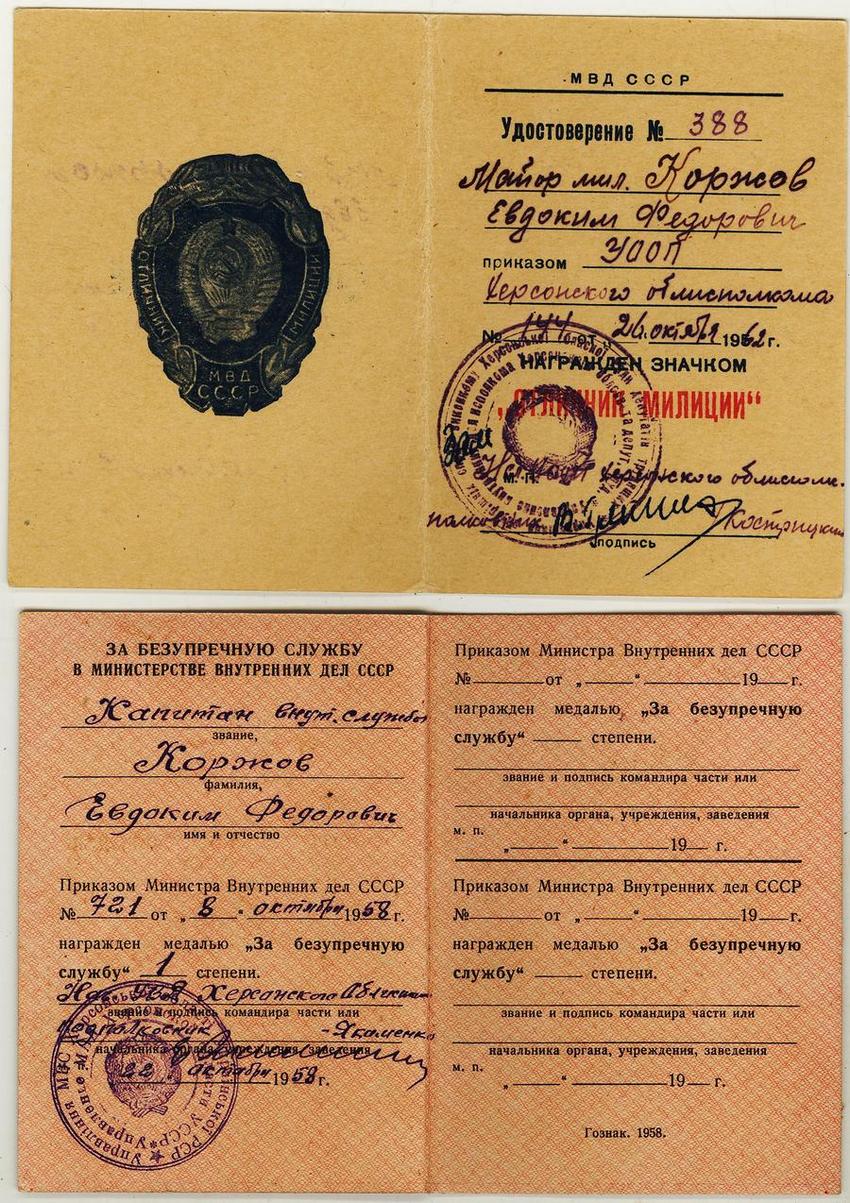 ОТЛИЧНИК
МИЛИЦИИ
МВД
СССР
МВД СССР
Удостоверение № 388
Майор мил. Коржов
Евдоким Федорович
приказом УООП
Херсонского облисполкома
№ 144 от 26 октября 1962 г.
НАГРАЖДЕН ЗНАЧКОМ
„ОТЛИЧНИК МИЛИЦИИ“
М. П. Херсонского облисполк.
полковник Кострицкий
подпись
ЗА БЕЗУПРЕЧНУЮ СЛУЖБУ
В МИНИСТЕРСТВЕ ВНУТРЕННИХ ДЕЛ СССР
Капитан внут. службы
звание,
Коржов
фамилия,
Евдоким Федорович
имя и отчество
Приказом Министра Внутренних дел СССР
№ 721 от „ 8 “ октября 1958 г.
награжден медалью „За безупречную
службу“ 1 степени.
Нач. УВД Херсонского
звание и подпись командира части или
подполковник -Якименко
начальника органа, учреждения, заведения
„ 22 “ октября 1958 г.
Приказом Министра Внутренних дел СССР
№ от „ “ 19 г.
награжден медалью „За безупречную
службу“ степени.
звание и подпись командира части или
начальника органа, учреждения, заведения
м. п.
„ “ 19 г.
Приказом Министра Внутренних дел СССР
№ от „ “ 19 г.
награжден медалью „За безупречную
службу“ степени.
звание и подпись командира части или
начальника органа, учреждения, заведения
м. п.
„ “ 19 г.
Гознак. 1958.